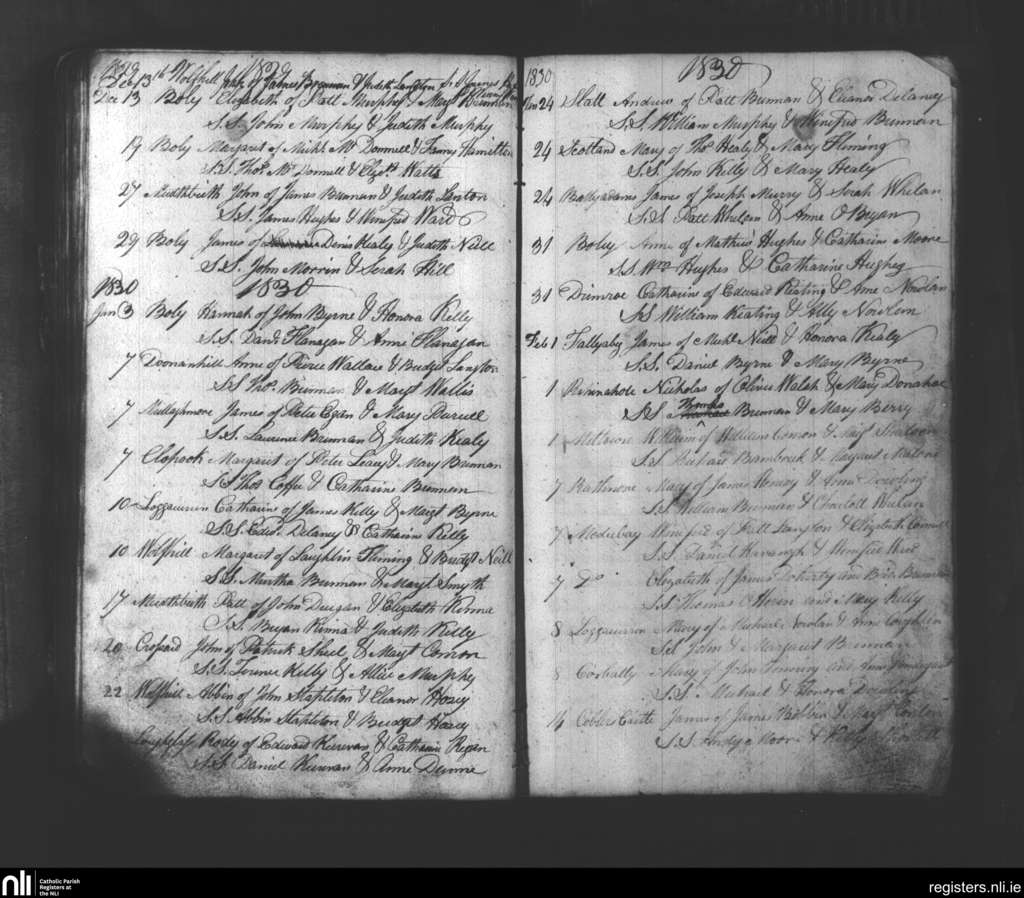 1829 1829
Dec 13th Wolfhill of James Brennan & Judith Langton S.S. James
Dec 13 Boly Elizabeth of Patt Murphy & Mary Brennan
S.S. John Murphy & Judith Murphy
19 Boly Margaret of Michl. Mc Donnell & Fanny Hamilton
S.S. Thos. Mc Donnell & Elizth. Watts
27 John of James Brennan & Judith Lanton
S.S. James Hughes & Winifred Ward
29 Boly James of Denis Kealy & Judith Neill
S.S. John Morrin & Sarah Hill
1830 1830
Jan 3 Boly Hannah of John Byrne & Honora Kelly
S.S. Danl. Flanagan & Anne Flanagan
7 Doonanhill Anne of Pierce Wallace & Bridgt Langton
S.S. Thos. Brennan & Margt Wallis
7 Mullaghmore James of Peter Egan & Mary
S.S. Laurence Brennan & Judith Kealy
7 Clopook Margaret of Peter Leacy & Mary Brennan
S.S. Thos Coffee & Catharine Brennan
10 Loggacurren Catharine of James Kelly & Margt Byrne
S.S. Edwd. Delaney & Catharine Kelly
10 Wolfhill Margaret of Laughlin Fleming & Bridgt Neill
S.S. Martha Brennan & Margt Smyth
17 Patt of John Deegan & Elizabeth Kinna
S.S. Bryan Kinna & Judith Kelly
20 Crossard John of Patrick Shiel & Margt Comon
S.S. Terence Kelly & Allice Murphy
22 Wolfhill Abbin of John Stapleton & Eleanor Hoary
S.S. Abbin Stapleton & Bridget Hoary
Rody of Edward Kirwan & Catharine Regan
S.S. Daniel Kirwan & Anne Dunne
1830 1830
Jan 24 Slatt Andrew of Patt Brennan & Eleanor Delaney
S.S. William Murphy & Winifred Brennan
24 Scotland Mary of Thos. Healy & Mary Fleming
S.S. John Kelly & Mary Healy
24 Ballyadams James of Joseph Murry & Sarah Whelan
S.S. Patt Whelan & Anne O Bryan
31 Boley Anne of Mathew Hughes & Catharine Moore
S.S. Wm Hughes & Catharine Hughes
31 Dunroe Catharine of Edward Keating & Anne Nowlan
S.S. William Keating & Ally Nowlan
Feb 1 James of Michl Neill & Honora Kealy
S.S. Daniel Byrne & Mary Byrne
1 Nicholas of Oliver Walsh & Mary Donahoe
S.S. Thomas Brennan & Mary Berry
1 William of William Comon & Margt
S.S. Richard Bambrick & Margaret Malone
7 Rathmore Mary of James & Anne Dowling
S.S. William Brennan & Charlott Whelan
7 Winifred of Patt Langton & Elizabeth
S.S. Daniel Kavanagh & Winifred
7 Do Elizabeth of James Doherty and Brennan
S.S. Thomas and Mary Kelly
8 Loggacurren Mary of Michael Nowlan & Anne Coughlin
S.S. John & Margaret Brennan
8 Corbally Mary of John and Anne
S.S. Michael & Honora Dowling
14 Coblers Castle James of James & Margt
S.S. Andy Moore &
nli
Catholic Parish
Registers at
the NLI
registers.nli.ie